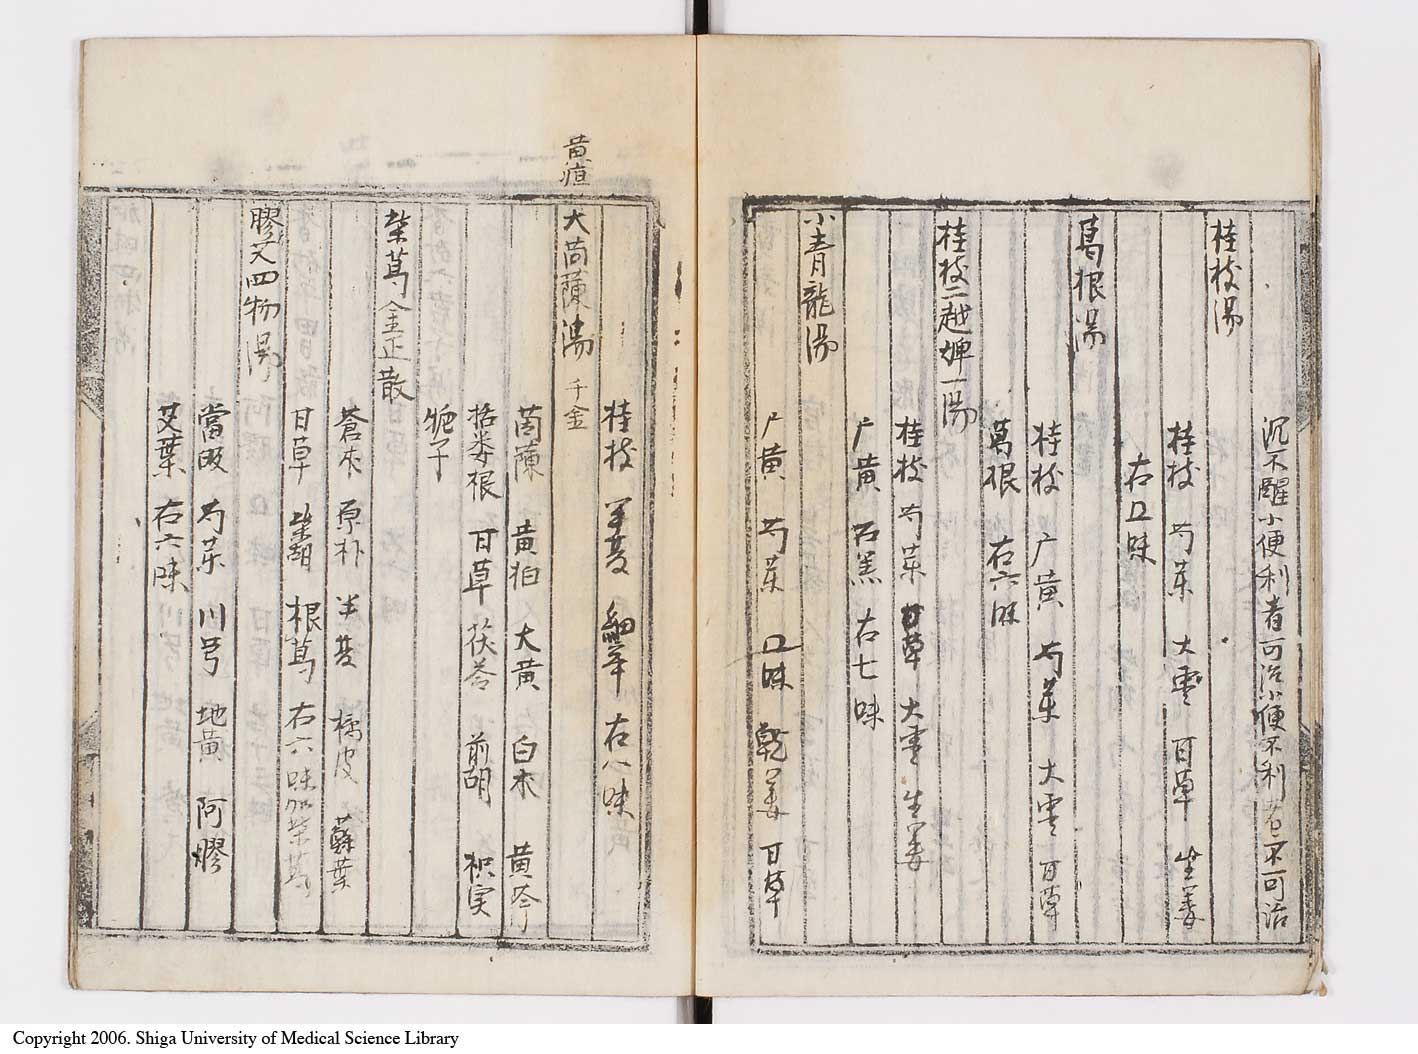 沉不醒小便利者可治小便不利者不可治
桂枝湯
桂枝 芍薬 大棗 甘草 生姜
右五味
葛根湯
桂枝 广黄 芍薬 大棗 甘草
葛根 右六味
桂枝二越婢一湯
桂枝 芍薬 甘草 大棗 生姜
广黄 石羔 右七味
小青龍湯
广黄 芍薬 五味 乾姜 甘草
桂枝 半夏 細辛 右八味
黄疸
大茵蔯湯 千金
茵蔯 黄柏 大黄 白朮 黄芩
括蒌根 甘草 茯苓 前胡 枳実
栀子
柴葛金正散
蒼朮 厚朴 半夏 橘皮 蘇葉
甘草 柴胡 根葛 右六味加柴葛
膠艾四物湯
當皈 芍薬 川芎 地黄 阿膠
艾葉 右六味
Copyright 2006. Shiga University of Medical Science Library